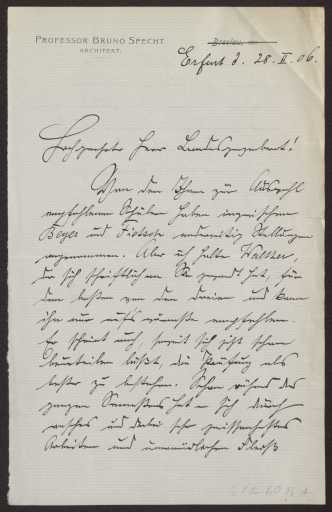 PROFESSOR BRUNO SPECHT
ARCHITEKT.
Breslau,
Erfurt d. 28. II. 06.
Hochgeehrter Herr Landesgeheimrat!
Von den Ihnen zur Auswahl
empfohlenen Schülern haben inzwischen
Beyer und anderweitig Stellungen
angenommen. Aber ich halte Walther,
der sich schriftlich an Sie gewandt hat, für
den besten von den dreien und kann
ihn nur aufs wärmste empfehlen.
Er scheint auch, soweit sich jetzt schon
beurteilen läßt, die Prüfung als
bester zu bestehen. Schon während des
ganzen Semesters hat er sich durch
rasches und dabei sehr gewissenhaftes
Arbeiten und unermüdlichen Fleiß